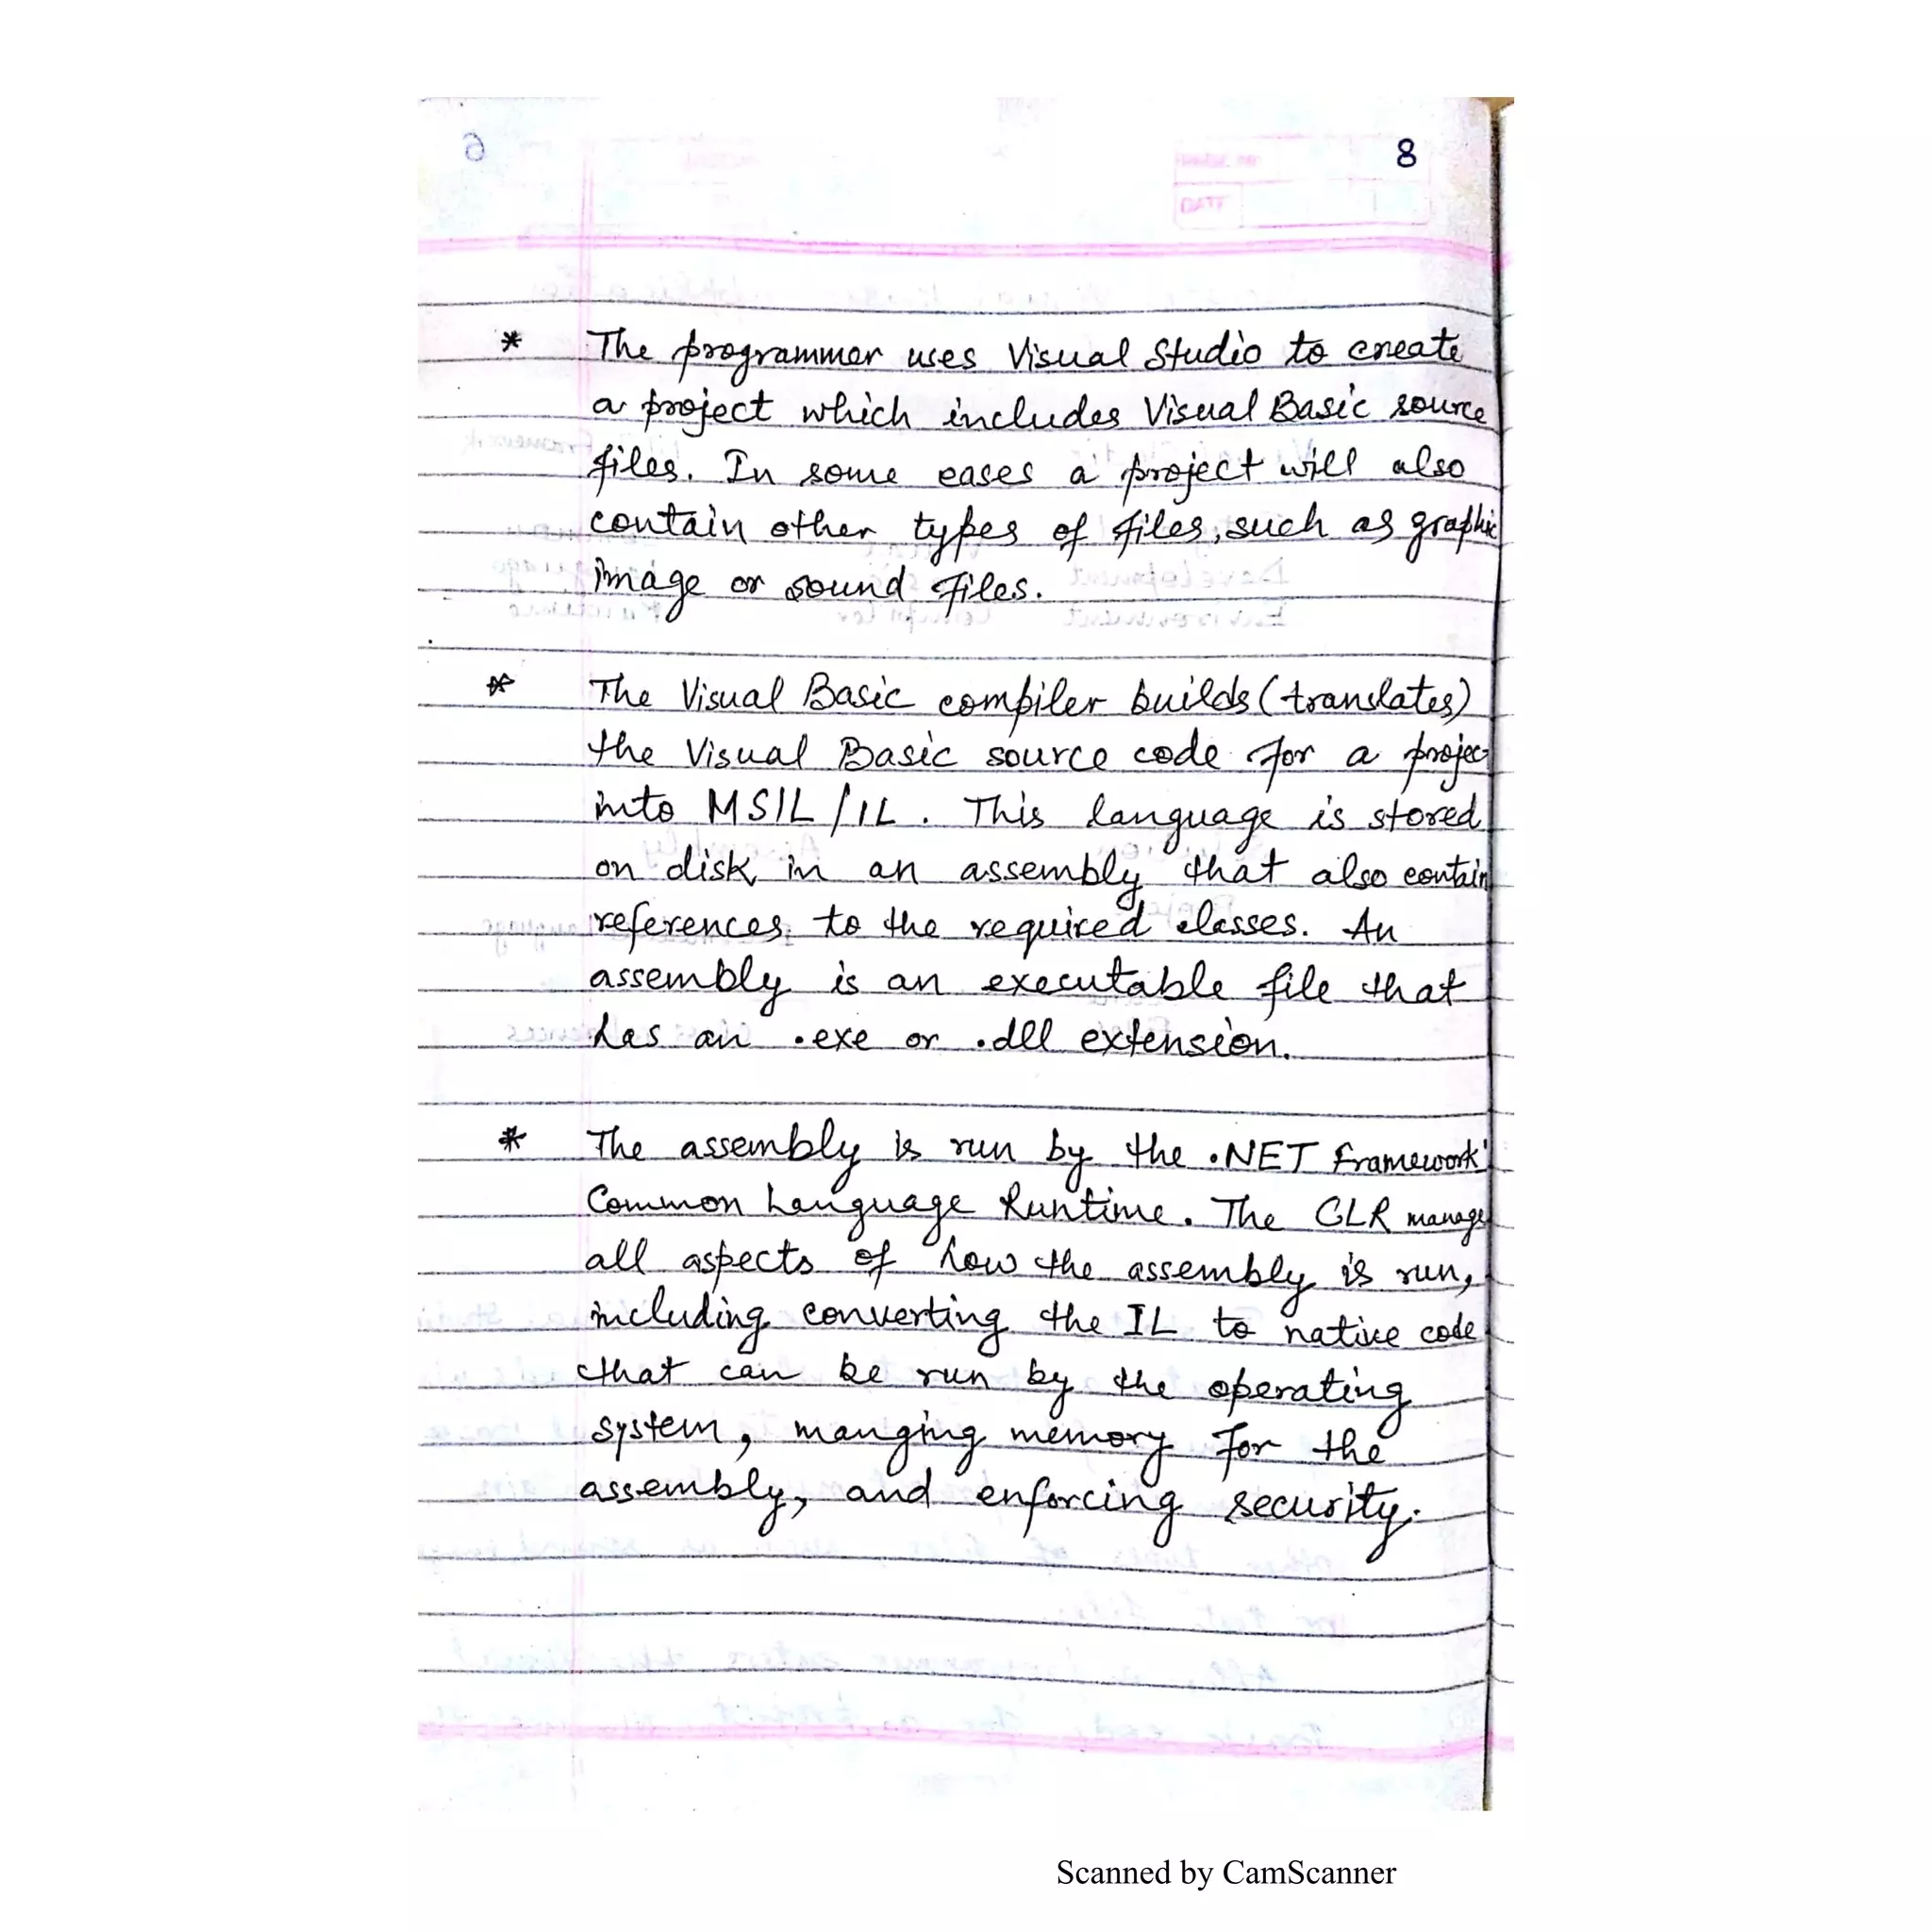 8
* The programmer uses Visual Studio to create
a project which includes Visual Basic source
files. In some cases a project will also
contain other types of files, such as graphic
image or sound files.
* The Visual Basic compiler builds (translates)
the Visual Basic source code for a projec
into MSIL/IL. This language is stored
on disk in an assembly that also contain
references to the required classes. An
assembly is an executable file that
has an .exe or .dll extension.
* The assembly is run by the .NET Framework'
Common Language Runtime. The CLR manage
all aspects of how the assembly is run,
including converting the IL to native code
that can be run by the operating
system, manging memory for the
assembly, and enforcing security.
Scanned by CamScanner